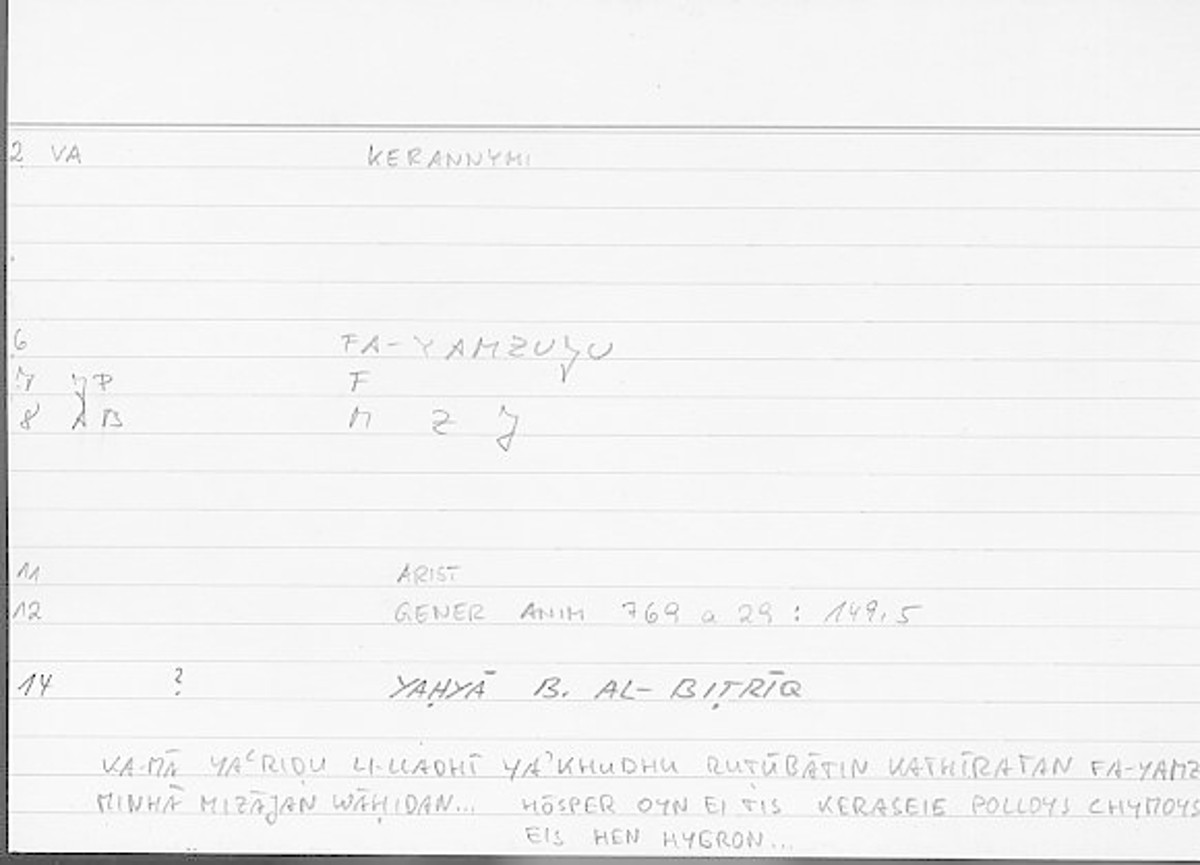 2 VA KERANNYMI
6 FA-YAMZUJU
7 JP F
8 AB M Z J
11 ARIST
12 GENER ANIM 769 a 29 : 149,5
14 ? YAḤYĀ B. AL-BIṬRĪQ
KA-MĀ YAʿRIḌU LI-LLADHĪ YAʾKHUDHU RUṬŪBĀTIN KATHĪRATAN FA-YAMZ
MINHĀ MIZĀJAN WĀḤIDAN... HŌSPER OYN EI TIS KERASEIE POLLOYS CHYMOYS
EIS HEN HYGRON...